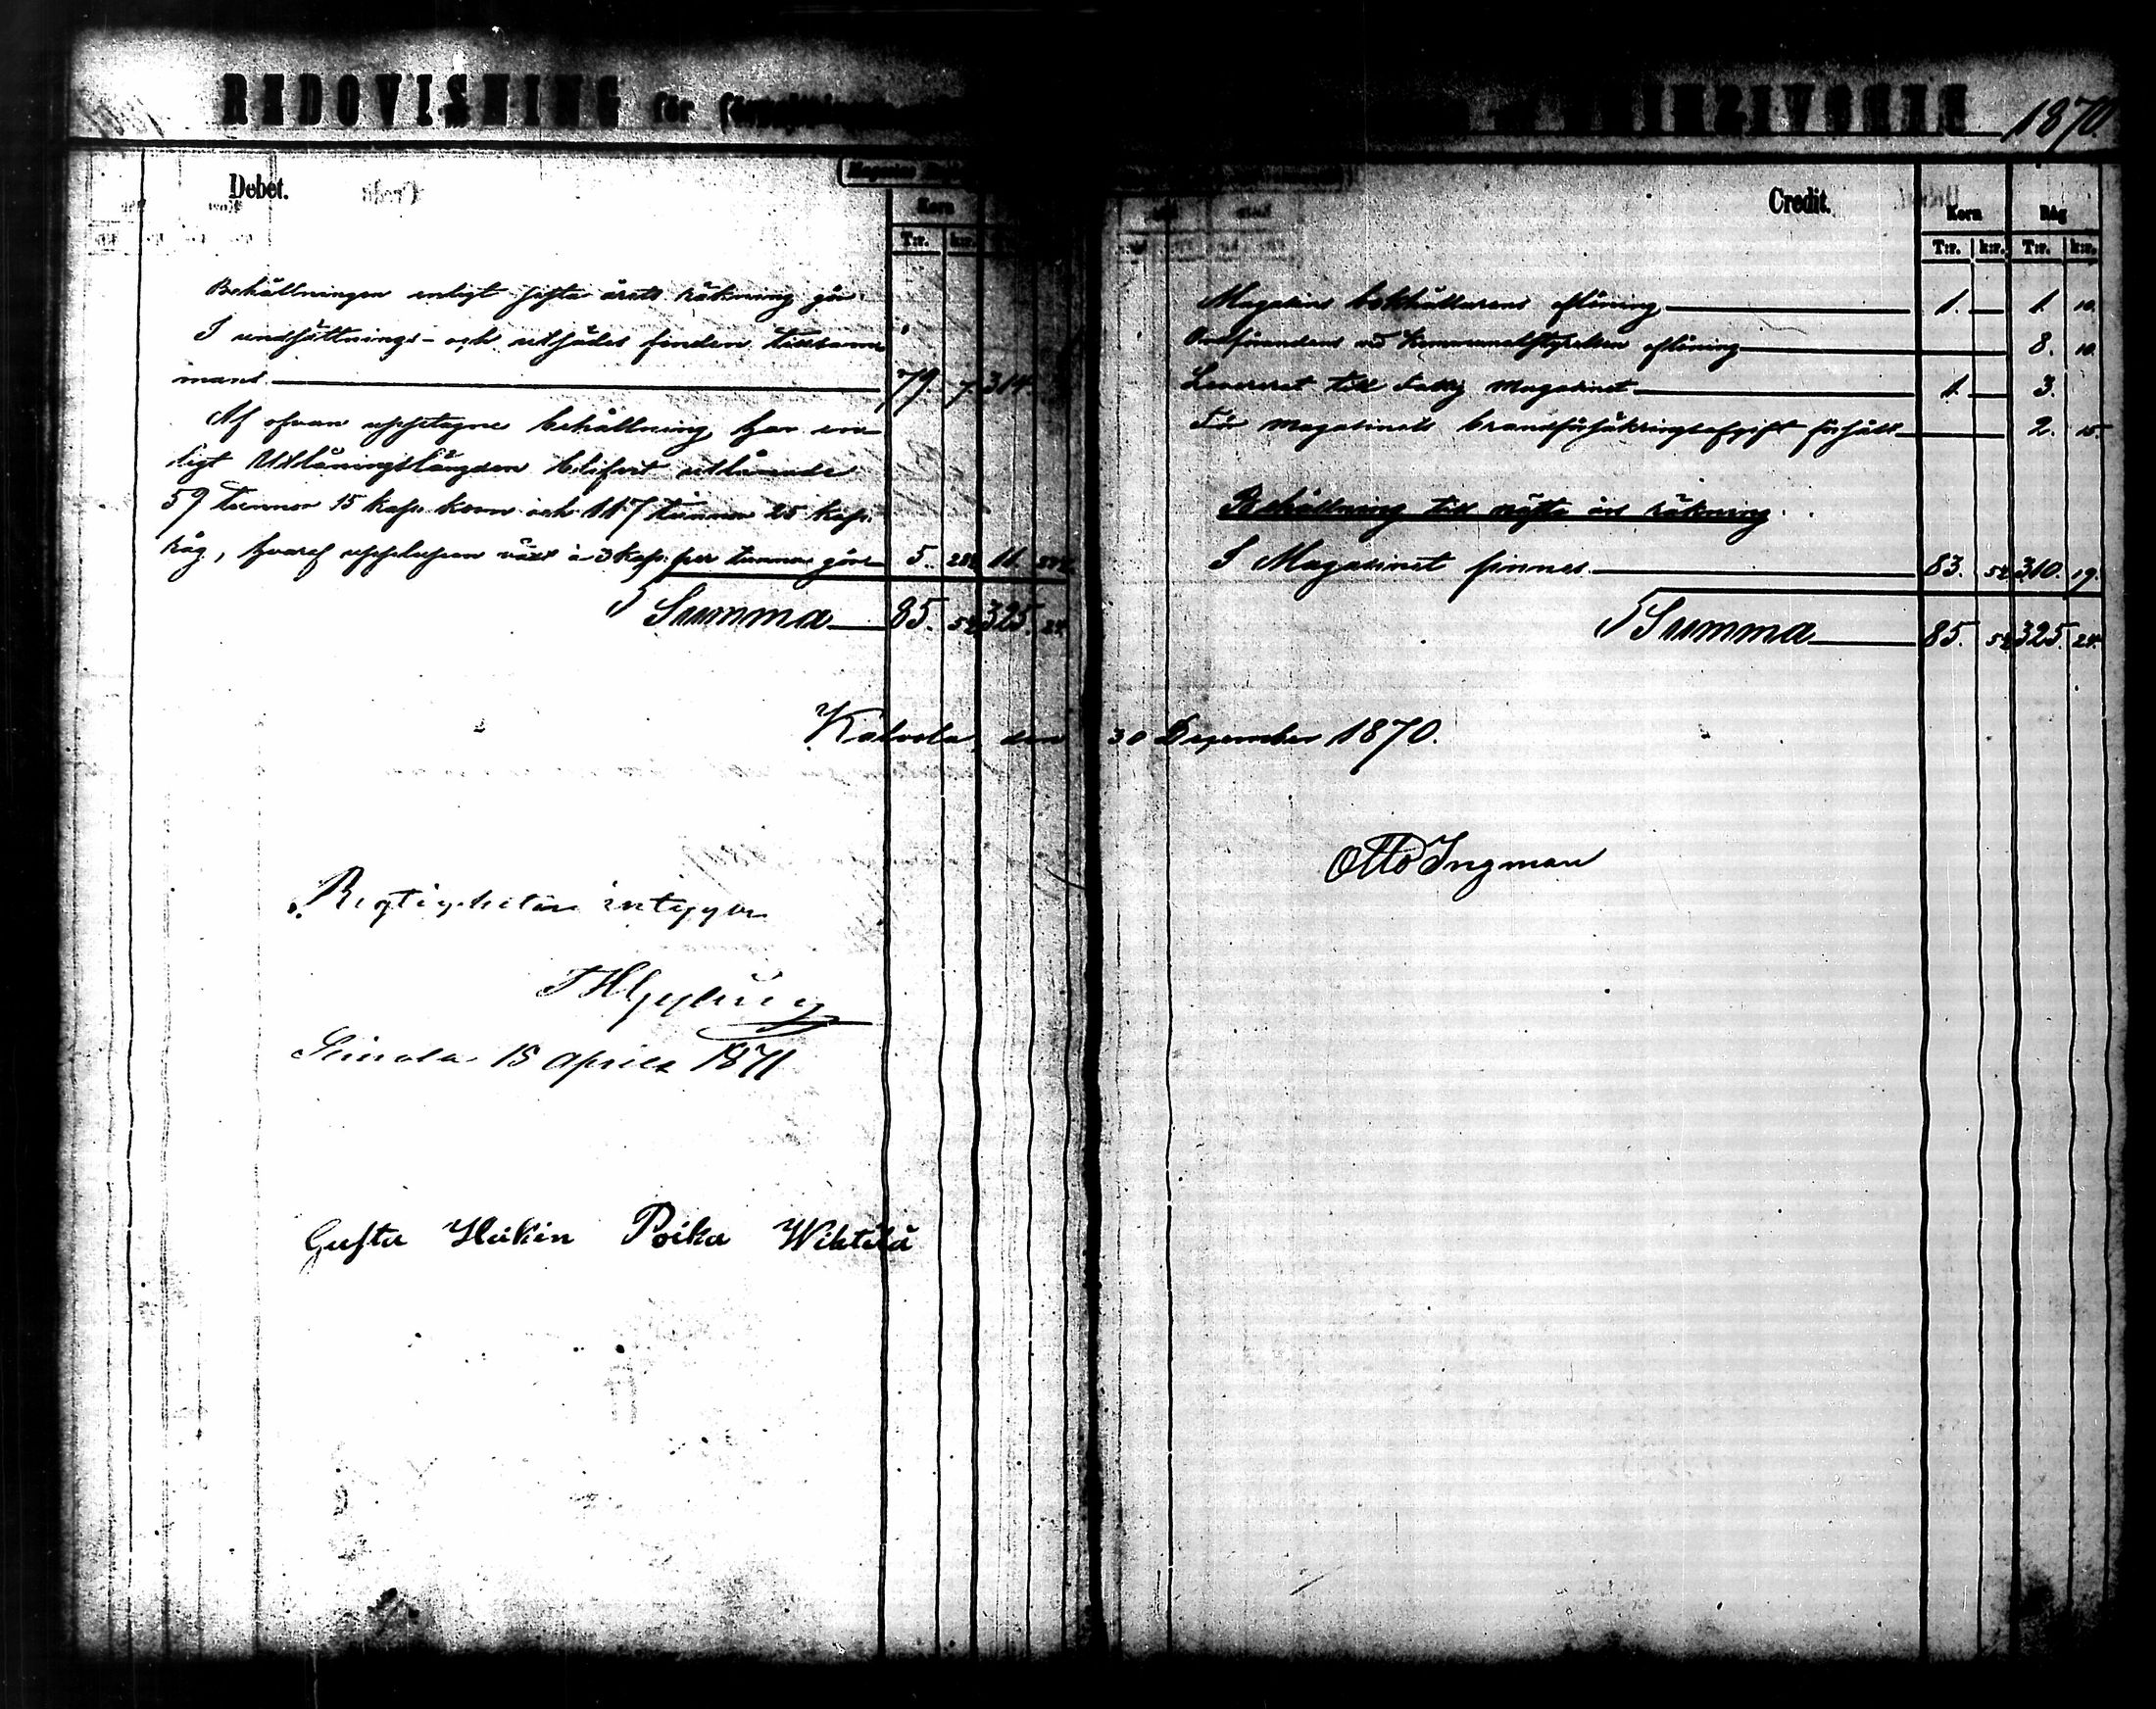 REDOVISNING för
1870.
Debet.
Korn
T:r. k:r.
Behållningen enligt sista årets räkning gör
I undsättnings- och utsädes fonden tillsam-
mans 79. 7. 314.
Af ofvan upptagne behållning har en-
ligt Utlåningslängden blifvit utlånade
59 tunnor 15 kap. korn och 117 tunnor 25 kap.
råg, hvaraf upplupen växt à 3 kap. per tunna gör 5. 11.
Summa 85. 325. 24.
Credit.
Korn Råg
T:r. k:r. T:r. k:r.
Magasins bokhållarens aflöning 1. — 1. 10.
Ordförandens vid Kommunalstyrelsen aflöning 8. 10.
Levereret till Fattig Magasinet 1. — 3.
För Magasinets brandförsäkringsafgift försåldt 2. 15.
Behållning till nästa års räkning.
I Magasinet finnes 83. 310. 19.
Summa 85. 325. 24.
Kalvola, den 30 December 1870.
Otto Ingman
Rigtigheten intygar
15 April 1871
Gusta Heikin Poika Wihtilä